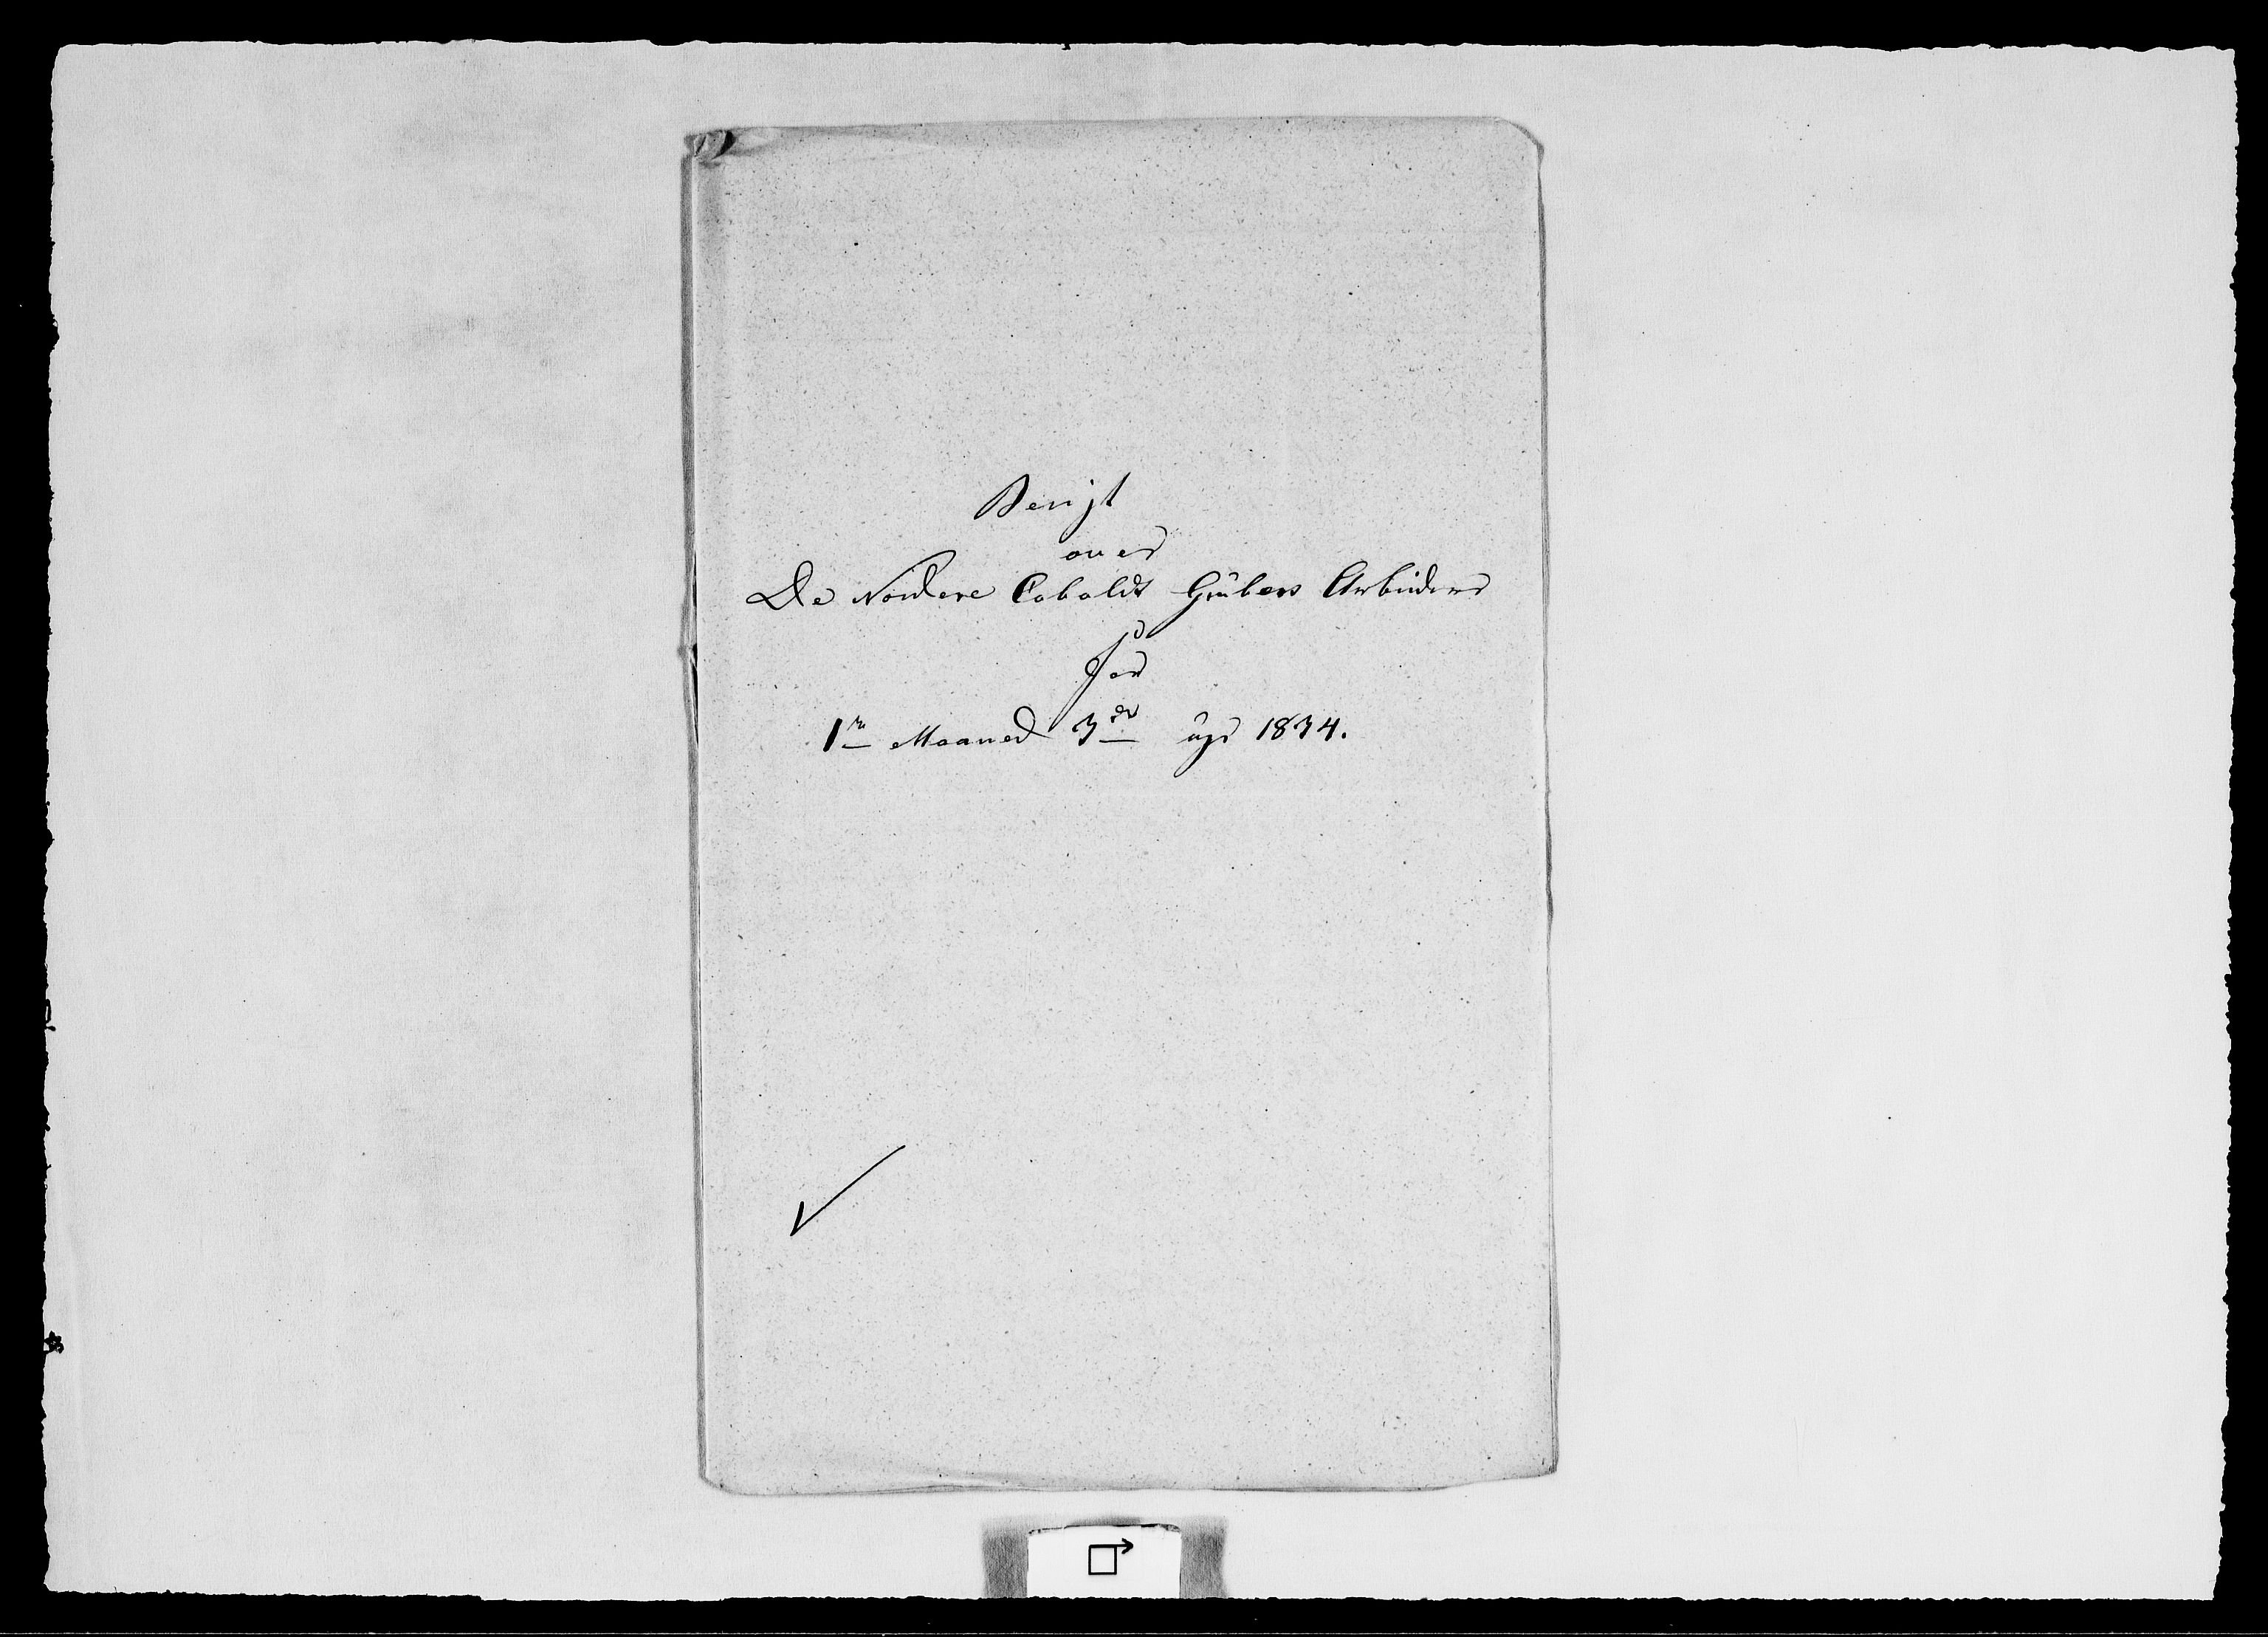 Berigt
over
De Nordere Cobolts Grubers Arbeider
for
1ste Maaned 3die uge 1834.